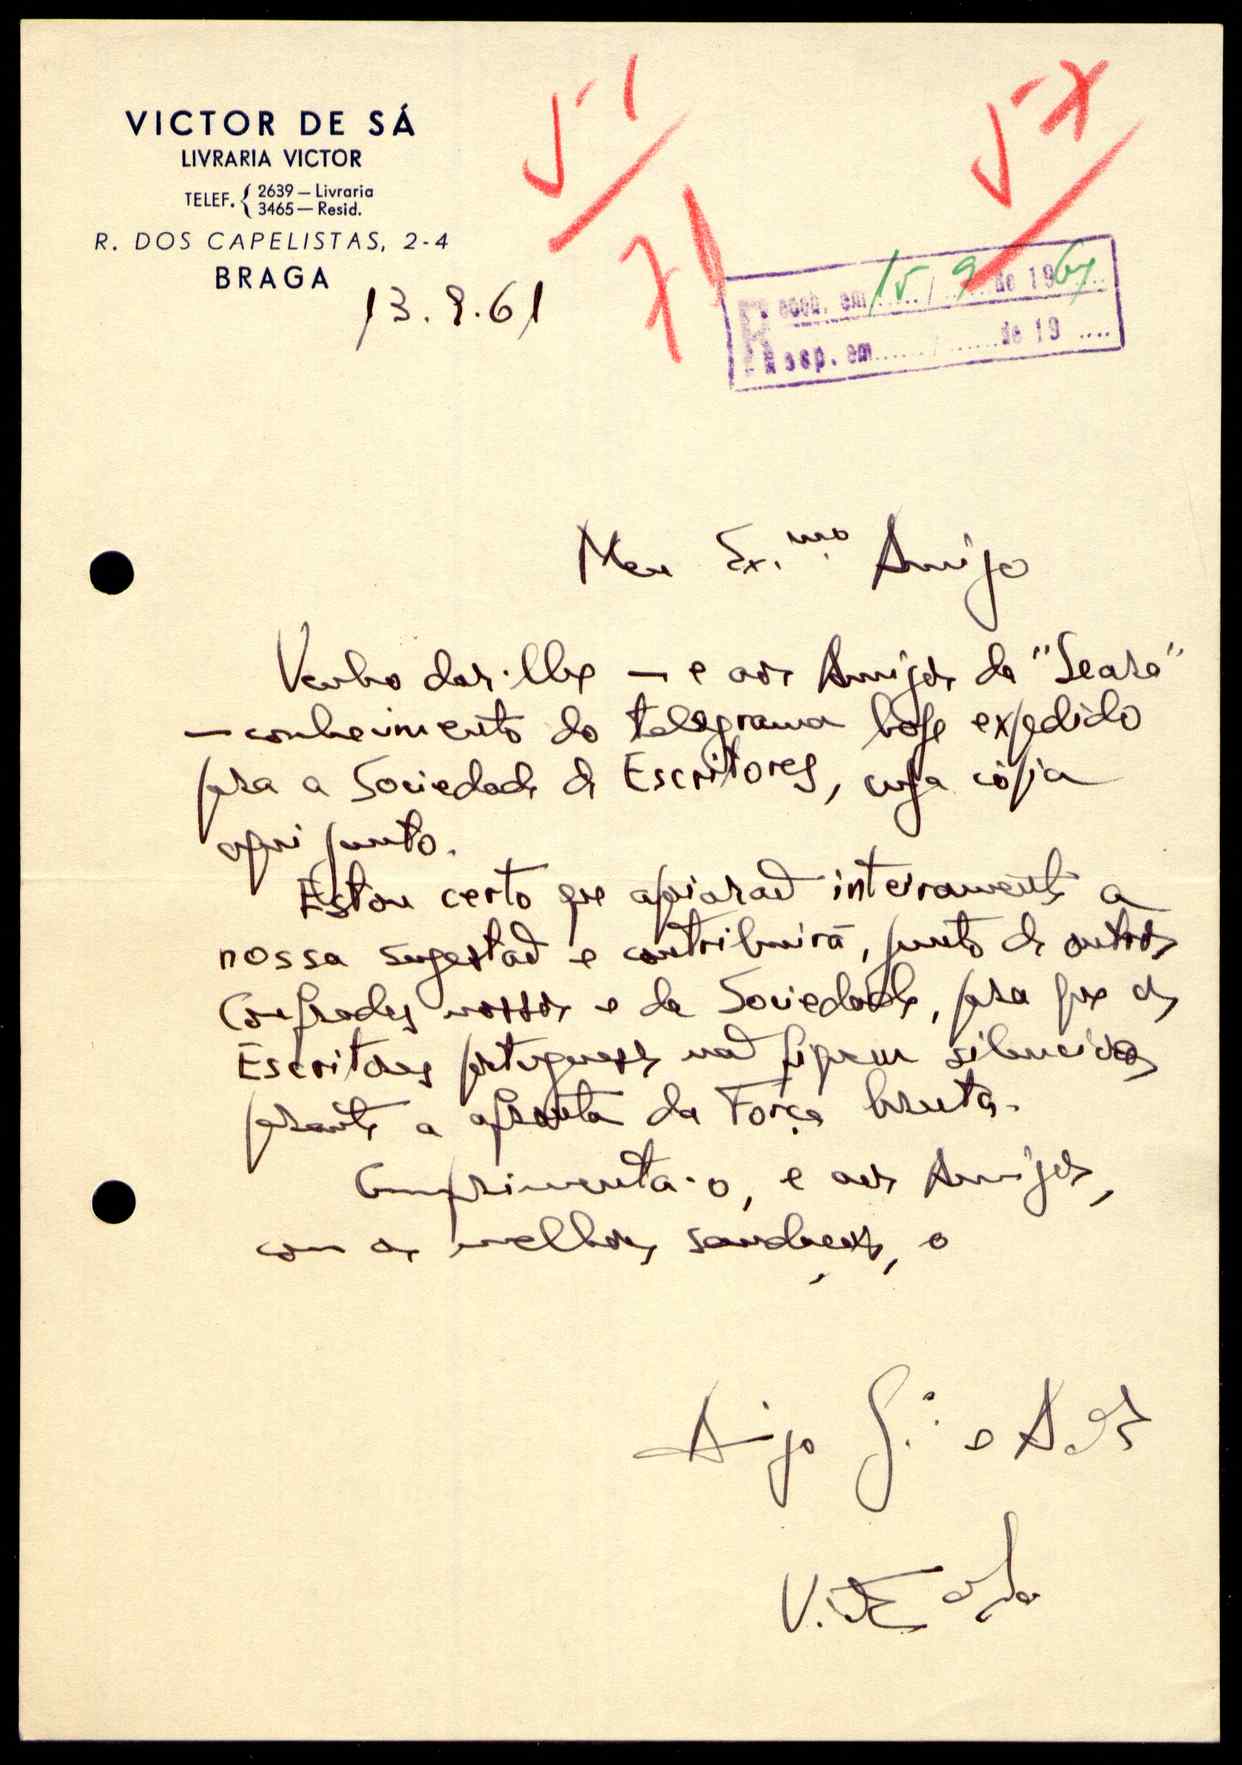 VICTOR DE SÁ
LIVRARIA VICTOR
TELEF. { 2639 — Livraria
3465 — Resid.
R. DOS CAPELISTAS, 2-4
BRAGA
13.9.61
Receb. em 15 / 9 de 1961
Resp. em ...... / ...... de 19 ....
Meu Ex.mo Amigo
Venho dar-lhe — e aos Amigos da "Seara"
— conhecimento do telegrama hoje expedido
para a Sociedade de Escritores, cuja cópia
aqui junto.
Estou certo que apoiará inteiramente a
nossa sugestão e contribuirá, junto de outros
Confrades nossos e da Sociedade, para que os
Escritores portugueses não fiquem silenciosos
perante a afronta da Força bruta.
Cumprimenta-o, e aos Amigos,
com as melhores saudações, o
Amigo G.º e Adr